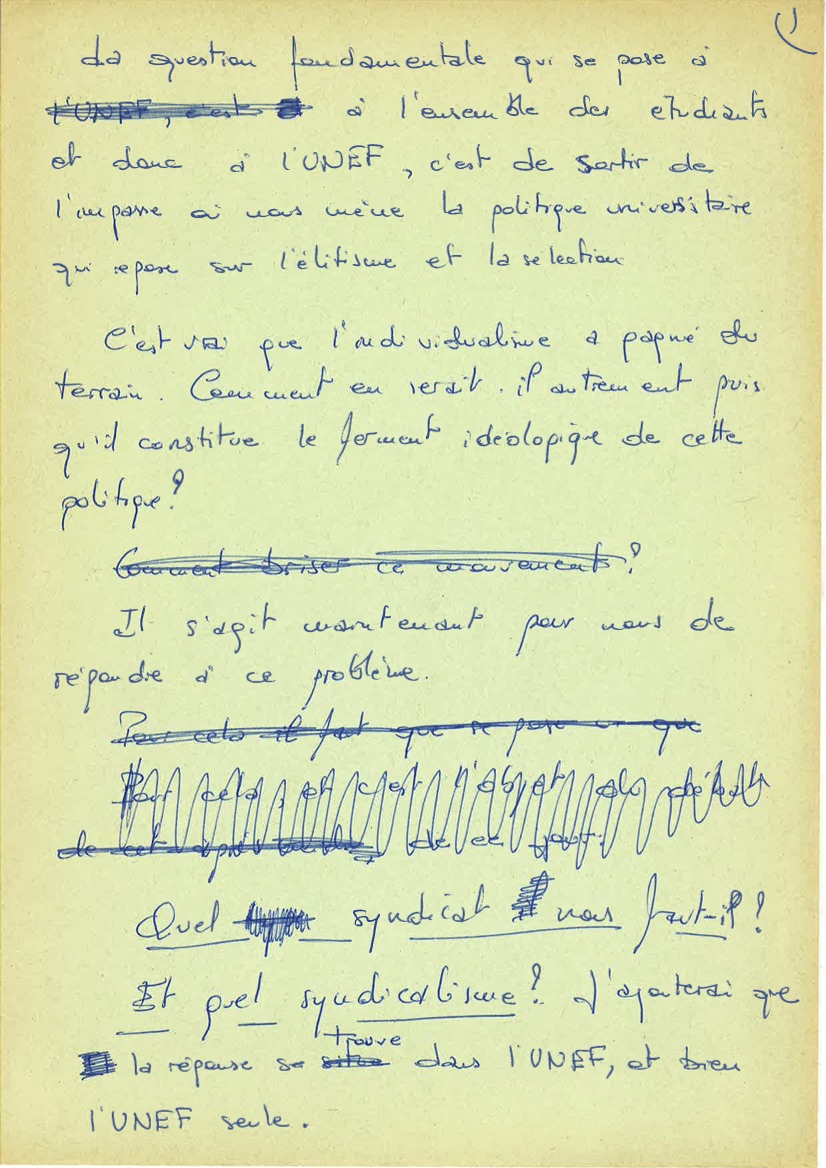 1)
La question fondamentale qui se pose à
l'UNEF, c'est à à l'ensemble des etudiants
et donc à l'UNEF, c'est de sortir de
l'impasse où nous mène la politique universitaire
qui repose sur l'élitisme et la selection
C'est vrai que l'individualisme a gagné du
terrain. Comment en serait-il autrement puis
qu'il constitue le ferment idéologique de cette
politique?
Comment briser ce mouvements?
Il s'agit maintenant pour nous de
répondre à ce problème.
Pour cela il faut que se pose que
Pour cela, et c'est l'objet du débat
de cet après de ce jour.
Quel syndicat nous faut-il?
Et quel syndicalisme? J'ajouterai que
trouve
la réponse se situe dans l'UNEF, et bien
l'UNEF seule.